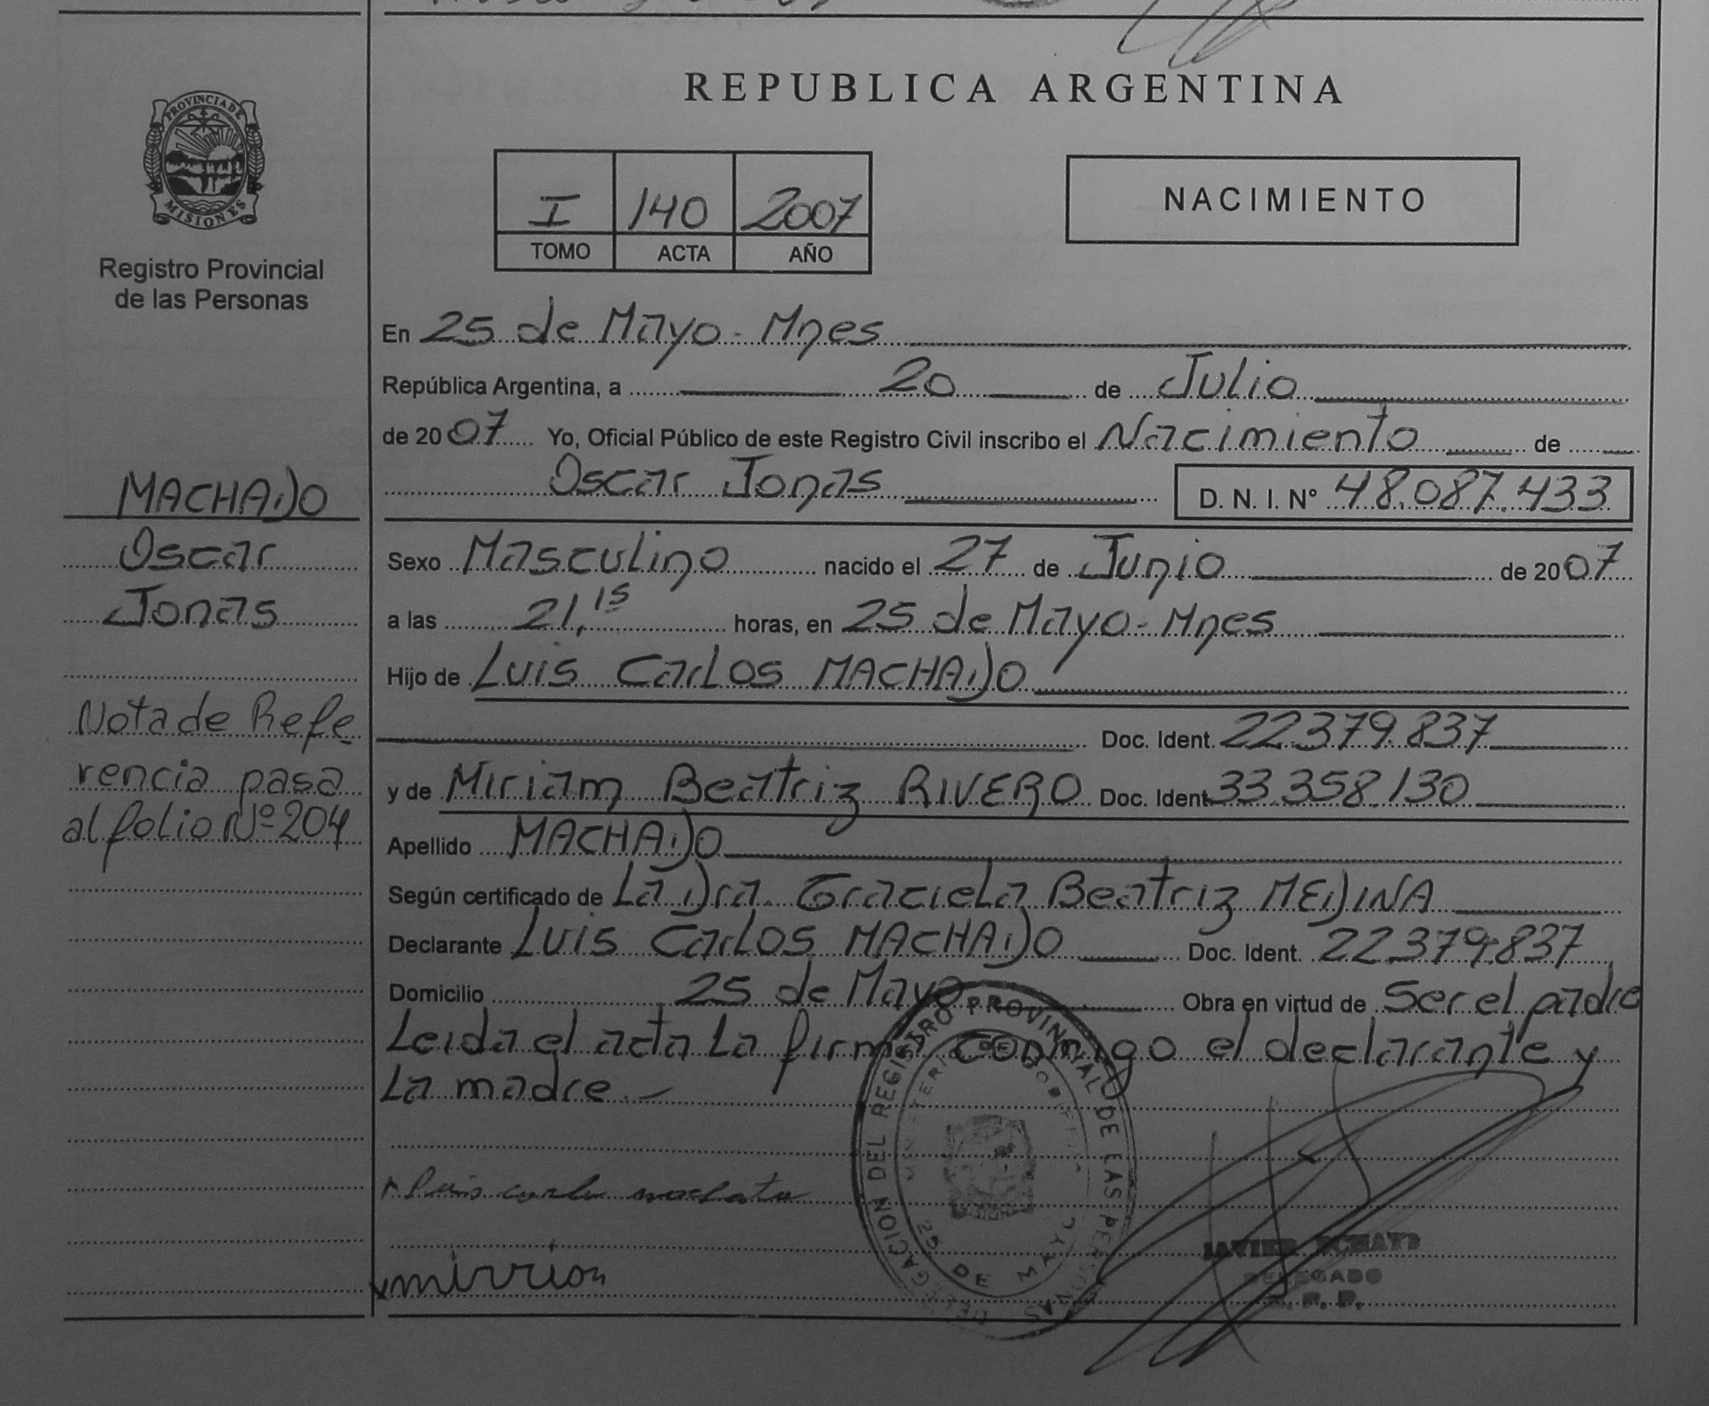 REPUBLICA ARGENTINA
PROVINCIA DE
MISIONES
Registro Provincial
de las Personas
I 140 2007
TOMO ACTA AÑO
NACIMIENTO
En 25 de Mayo - Mnes
República Argentina, a 20 de Julio
de 2007 Yo, Oficial Público de este Registro Civil inscribo el Nacimiento de
Oscar Jonas D. N. I. Nº 48.087.433
Sexo Masculino nacido el 27 de Junio de 2007
a las 21,15 horas, en 25 de Mayo - Mnes
Hijo de Luis Carlos MACHADO
Doc. Ident. 22379.837
y de Miriam Beatriz RIVERO Doc. Ident. 33.358.130
Apellido MACHADO
Según certificado de La Dra. Graciela Beatriz MEDINA
Declarante Luis Carlos MACHADO Doc. Ident. 22.379.837
Domicilio 25 de Mayo Obra en virtud de Ser el padre
Leida el acta La firma conmigo el declarante y
La madre.-
MACHADO
Oscar
Jonas
Nota de Refe
rencia pasa
al folio Nº 204
DELEGACION DEL REGISTRO PROVINCIAL DE LAS PERSONAS
25 DE MAYO
mirrian
JAVIER
DELEGADO